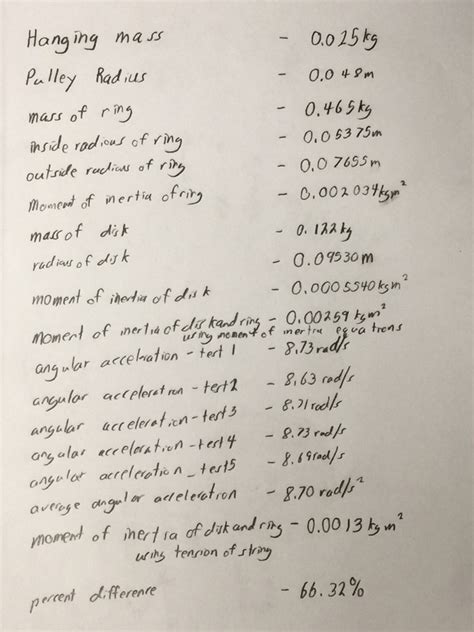 Hanging mass - 0.025kg
Pulley Radius - 0.048m
mass of ring - 0.465kg
inside radious of ring - 0.05375m
outside radious of ring - 0.07655m
Moment of inertia of ring - 0.002034kgm²
mass of disk - 0.122kg
radious of disk - 0.09530m
moment of inertia of disk - 0.0005540kgm²
moment of inertia of disk and ring - 0.00259kgm²
using moment of inertia equations
angular acceleration - test 1 - 8.73rad/s
angular acceleration - test2 - 8.63 rad/s
angular acceleration - test3 - 8.71rad/s
angular acceleration - test4 - 8.73rad/s
angular acceleration - test5 - 8.69rad/s
average angular acceleration - 8.70 rad/s²
moment of inertia of disk and ring - 0.0013kgm²
using tension of string
percent difference - 66.32%